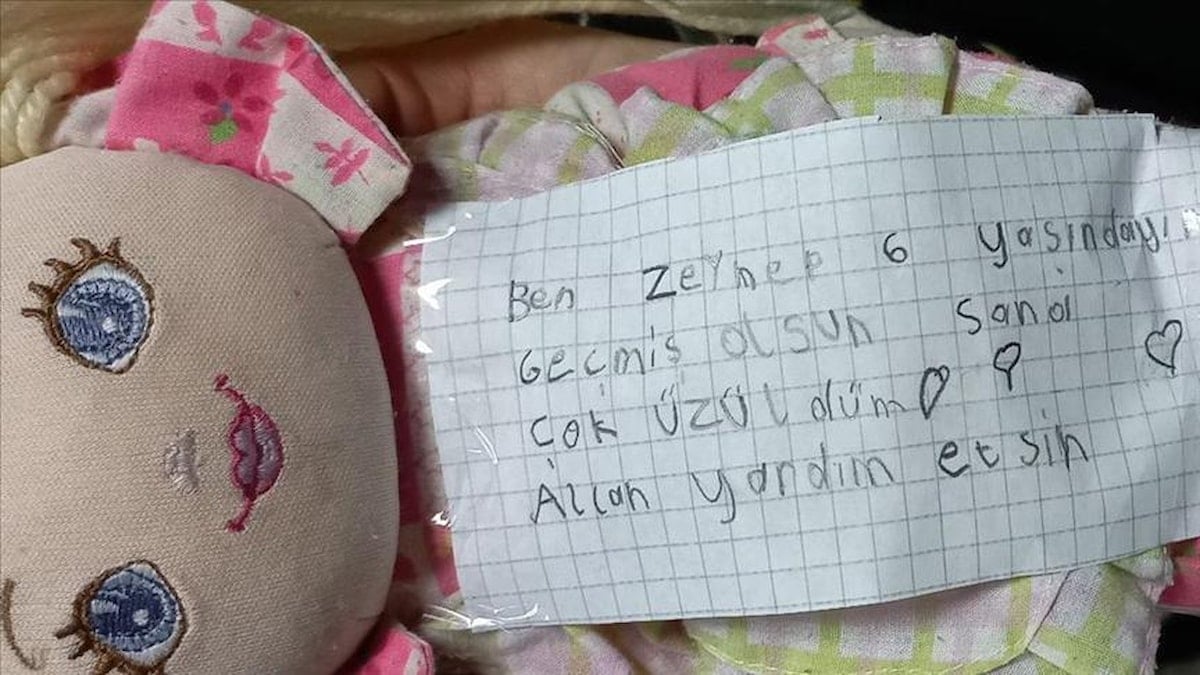 Ben Zeynep 6 yaşındayım
Geçmiş olsun sana
çok üzüldüm
Allah yardım etsin